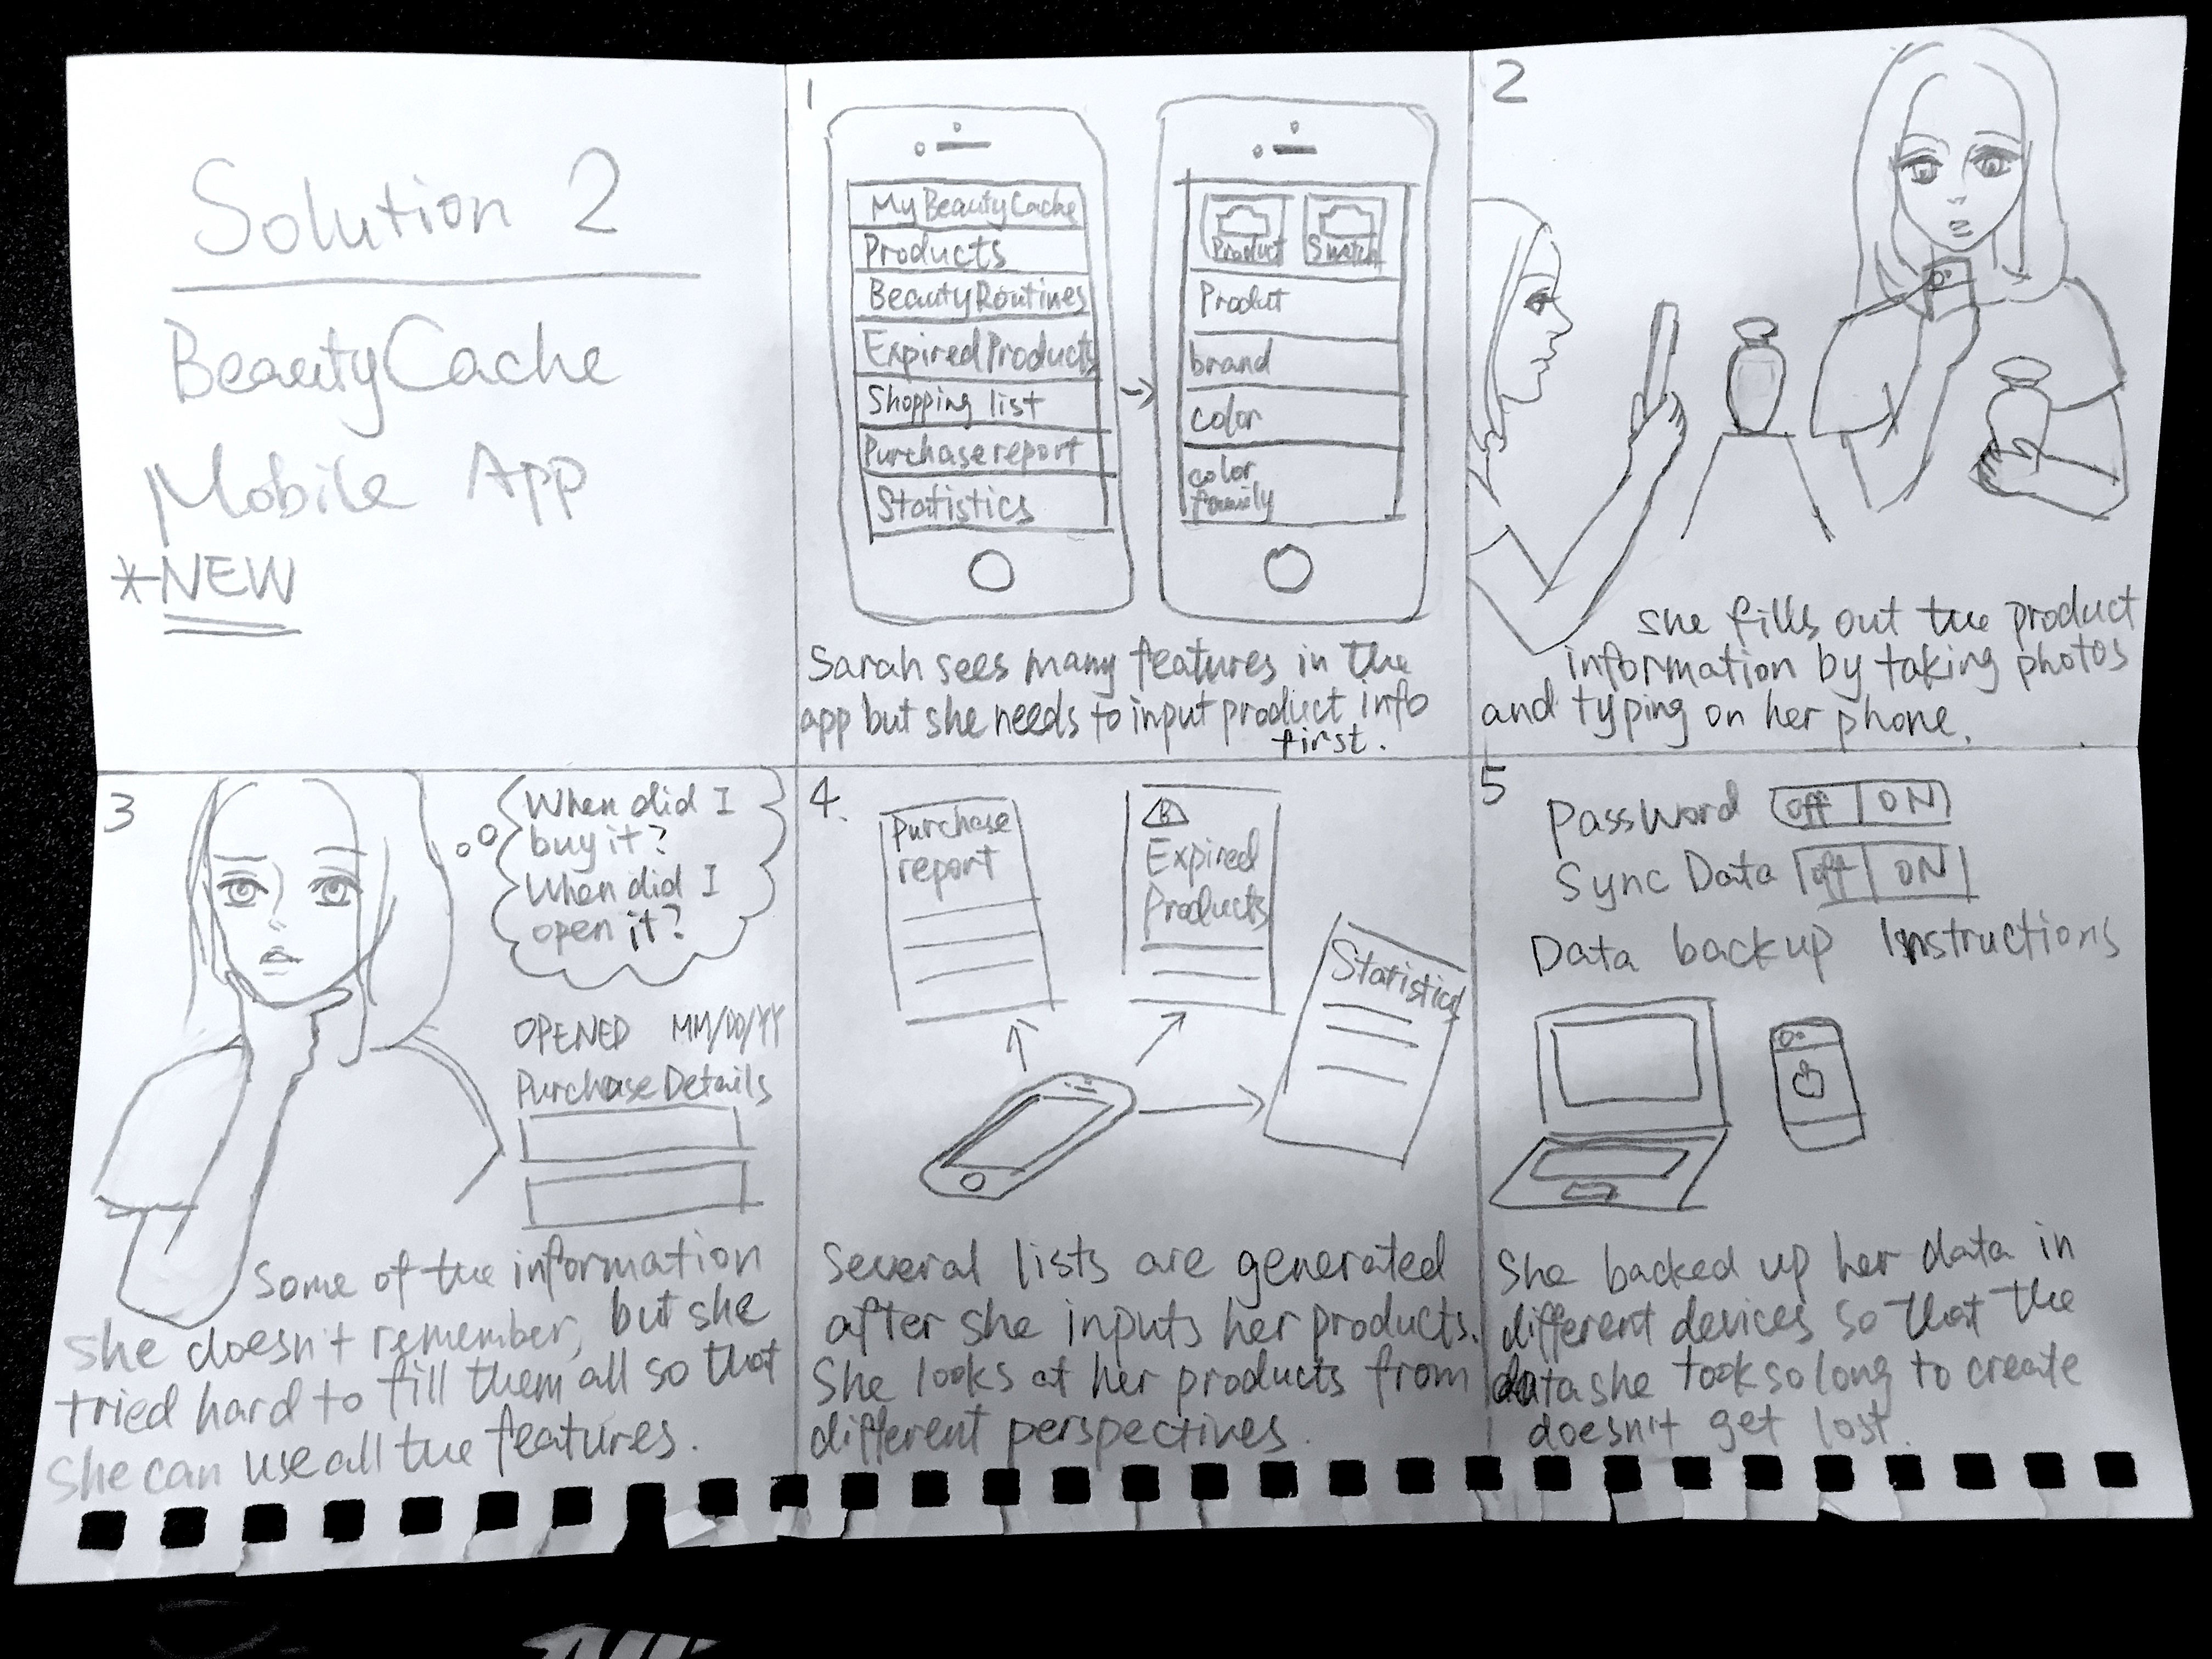 Solution 2
BeautyCache
Mobile App
*NEW
1
MyBeautyCache
Products
BeautyRoutines
ExpiredProducts
Shopping list
Purchasereport
Statistics
→
Product Swatch
Product
brand
color
color
family
Sarah sees many features in the
app but she needs to input product info
first.
2
she fills out the product
information by taking photos
and typing on her phone.
3
When did I
buy it?
When did I
open it?
OPENED MM/DD/YY
Purchase Details
Some of the information
she doesn't remember, but she
tried hard to fill them all so that
she can use all the features.
4.
Purchase
report
Expired
Products
Statistics
Several lists are generated
after she inputs her products.
She looks at her products from
different perspectives.
5
Password off ON
Sync Data off ON
Data backup Instructions
She backed up her data in
different devices so that the
data she took so long to create
doesn't get lost.